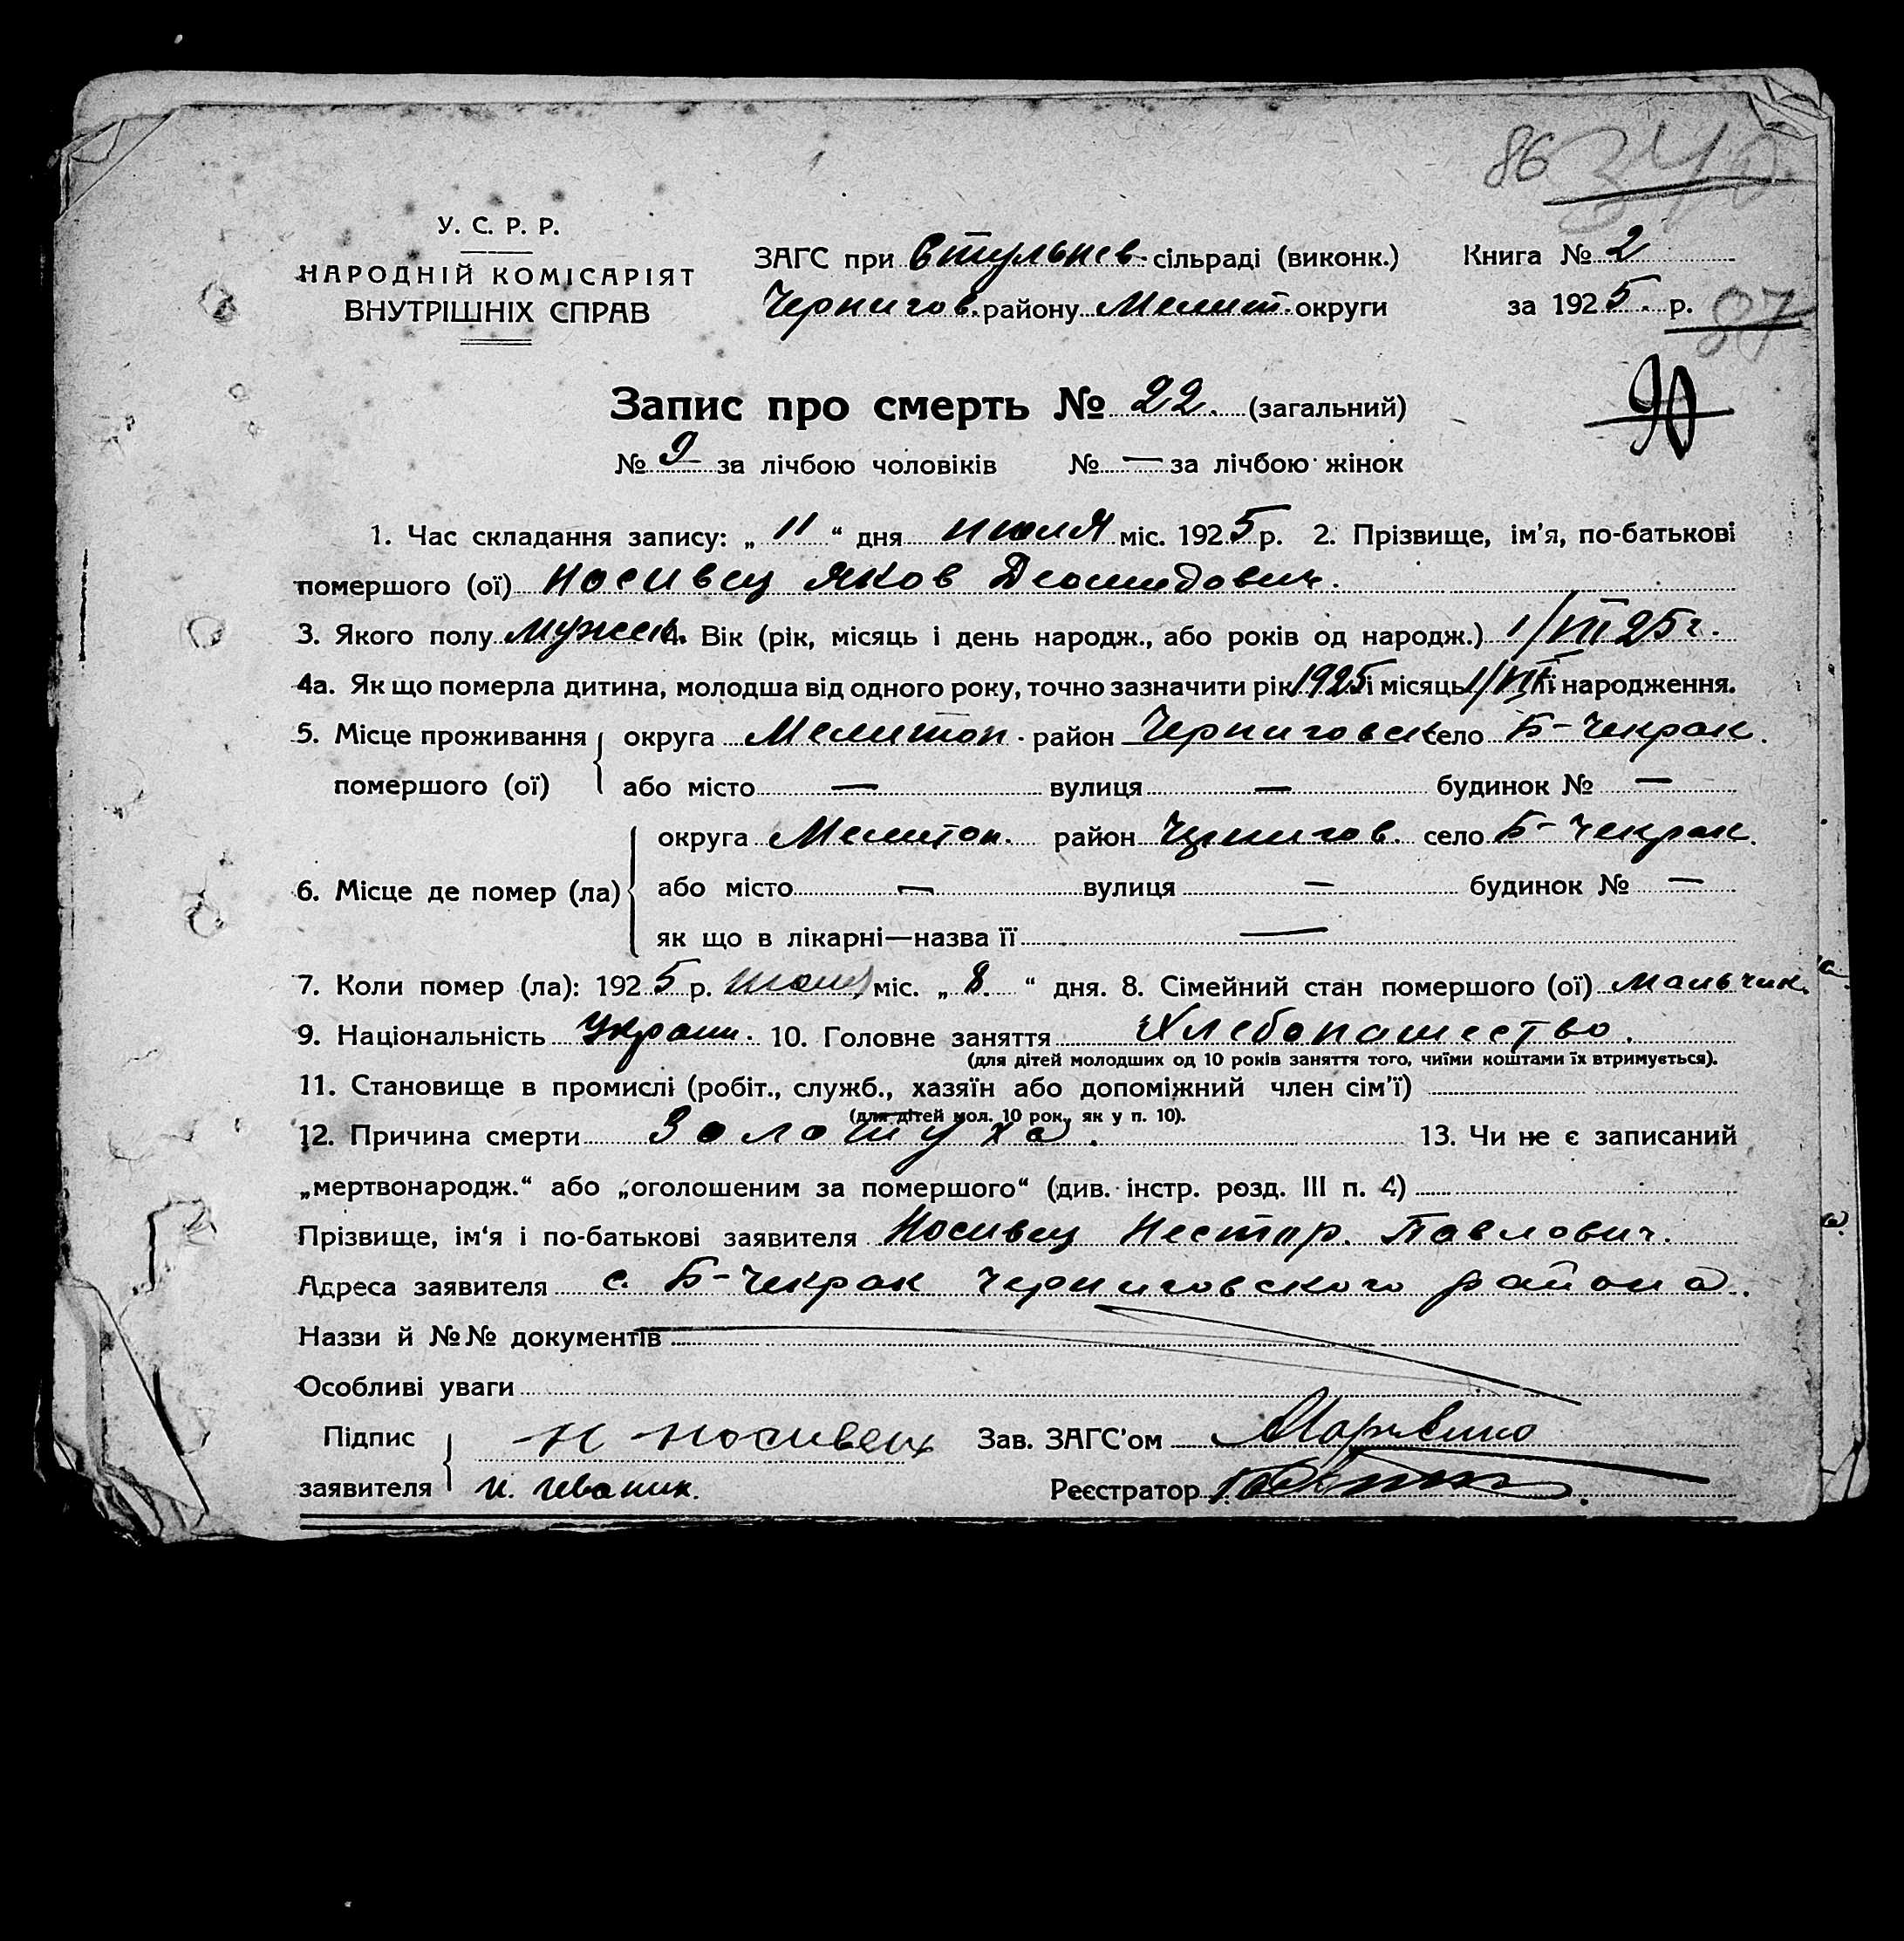 86 340.
У. С. Р. Р.
НАРОДНІЙ КОМІСАРІЯТ
ВНУТРІШНІХ СПРАВ
ЗАГС при Втульнев. сільраді (виконк.) Книга № 2
Чернигов. району Мелит. округи за 1925. р. 87
90
Запис про смерть № 22. (загальний)
№ 9 за лічбою чоловіків № — за лічбою жінок
1. Час складання запису: „ 11 “ дня июля міс. 1925 р. 2. Прізвище, ім'я, по-батькові
помершого (ої) Носивец Яков Деомидович.
3. Якого полу мужск. 4. Вік (рік, місяць і день народж., або років од народж.) 1/VII 25 г.
4а. Як що померла дитина, молодша від одного року, точно зазначити рік 1925 і місяць 1/VII її народження.
5. Місце проживання помершого (ої) округа Мелитоп. район Черниговск село Б-Чекрак.
або місто — вулиця — будинок № —
6. Місце де помер (ла) округа Мелитоп. район Чернигов. село Б-Чекрак.
або місто — вулиця — будинок № —
як що в лікарні—назва її —
7. Коли помер (ла): 1925 р. июля міс. „ 8. “ дня. 8. Сімейний стан помершого (ої) мальчик.
9. Національність Украин. 10. Головне заняття Хлебопашество.
(для дітей молодших од 10 років заняття того, чиїми коштами їх втримується).
11. Становище в промислі (робіт., служб., хазяїн або допоміжний член сім'ї)
(для дітей мол. 10 рок., як у п. 10).
12. Причина смерти Золотуха. 13. Чи не є записаний
„мертвонародж.“ або „оголошеним за помершого“ (див. інстр. розд. III п. 4)
Прізвище, ім'я і по-батькові заявителя Носивец Нестор. Павлович.
Адреса заявителя с. Б-Чекрак Черниговского района.
Наззи й №№ документів
Особливі уваги
Підпис заявителя Н Носивец Зав. ЗАГС'ом
Реєстратор